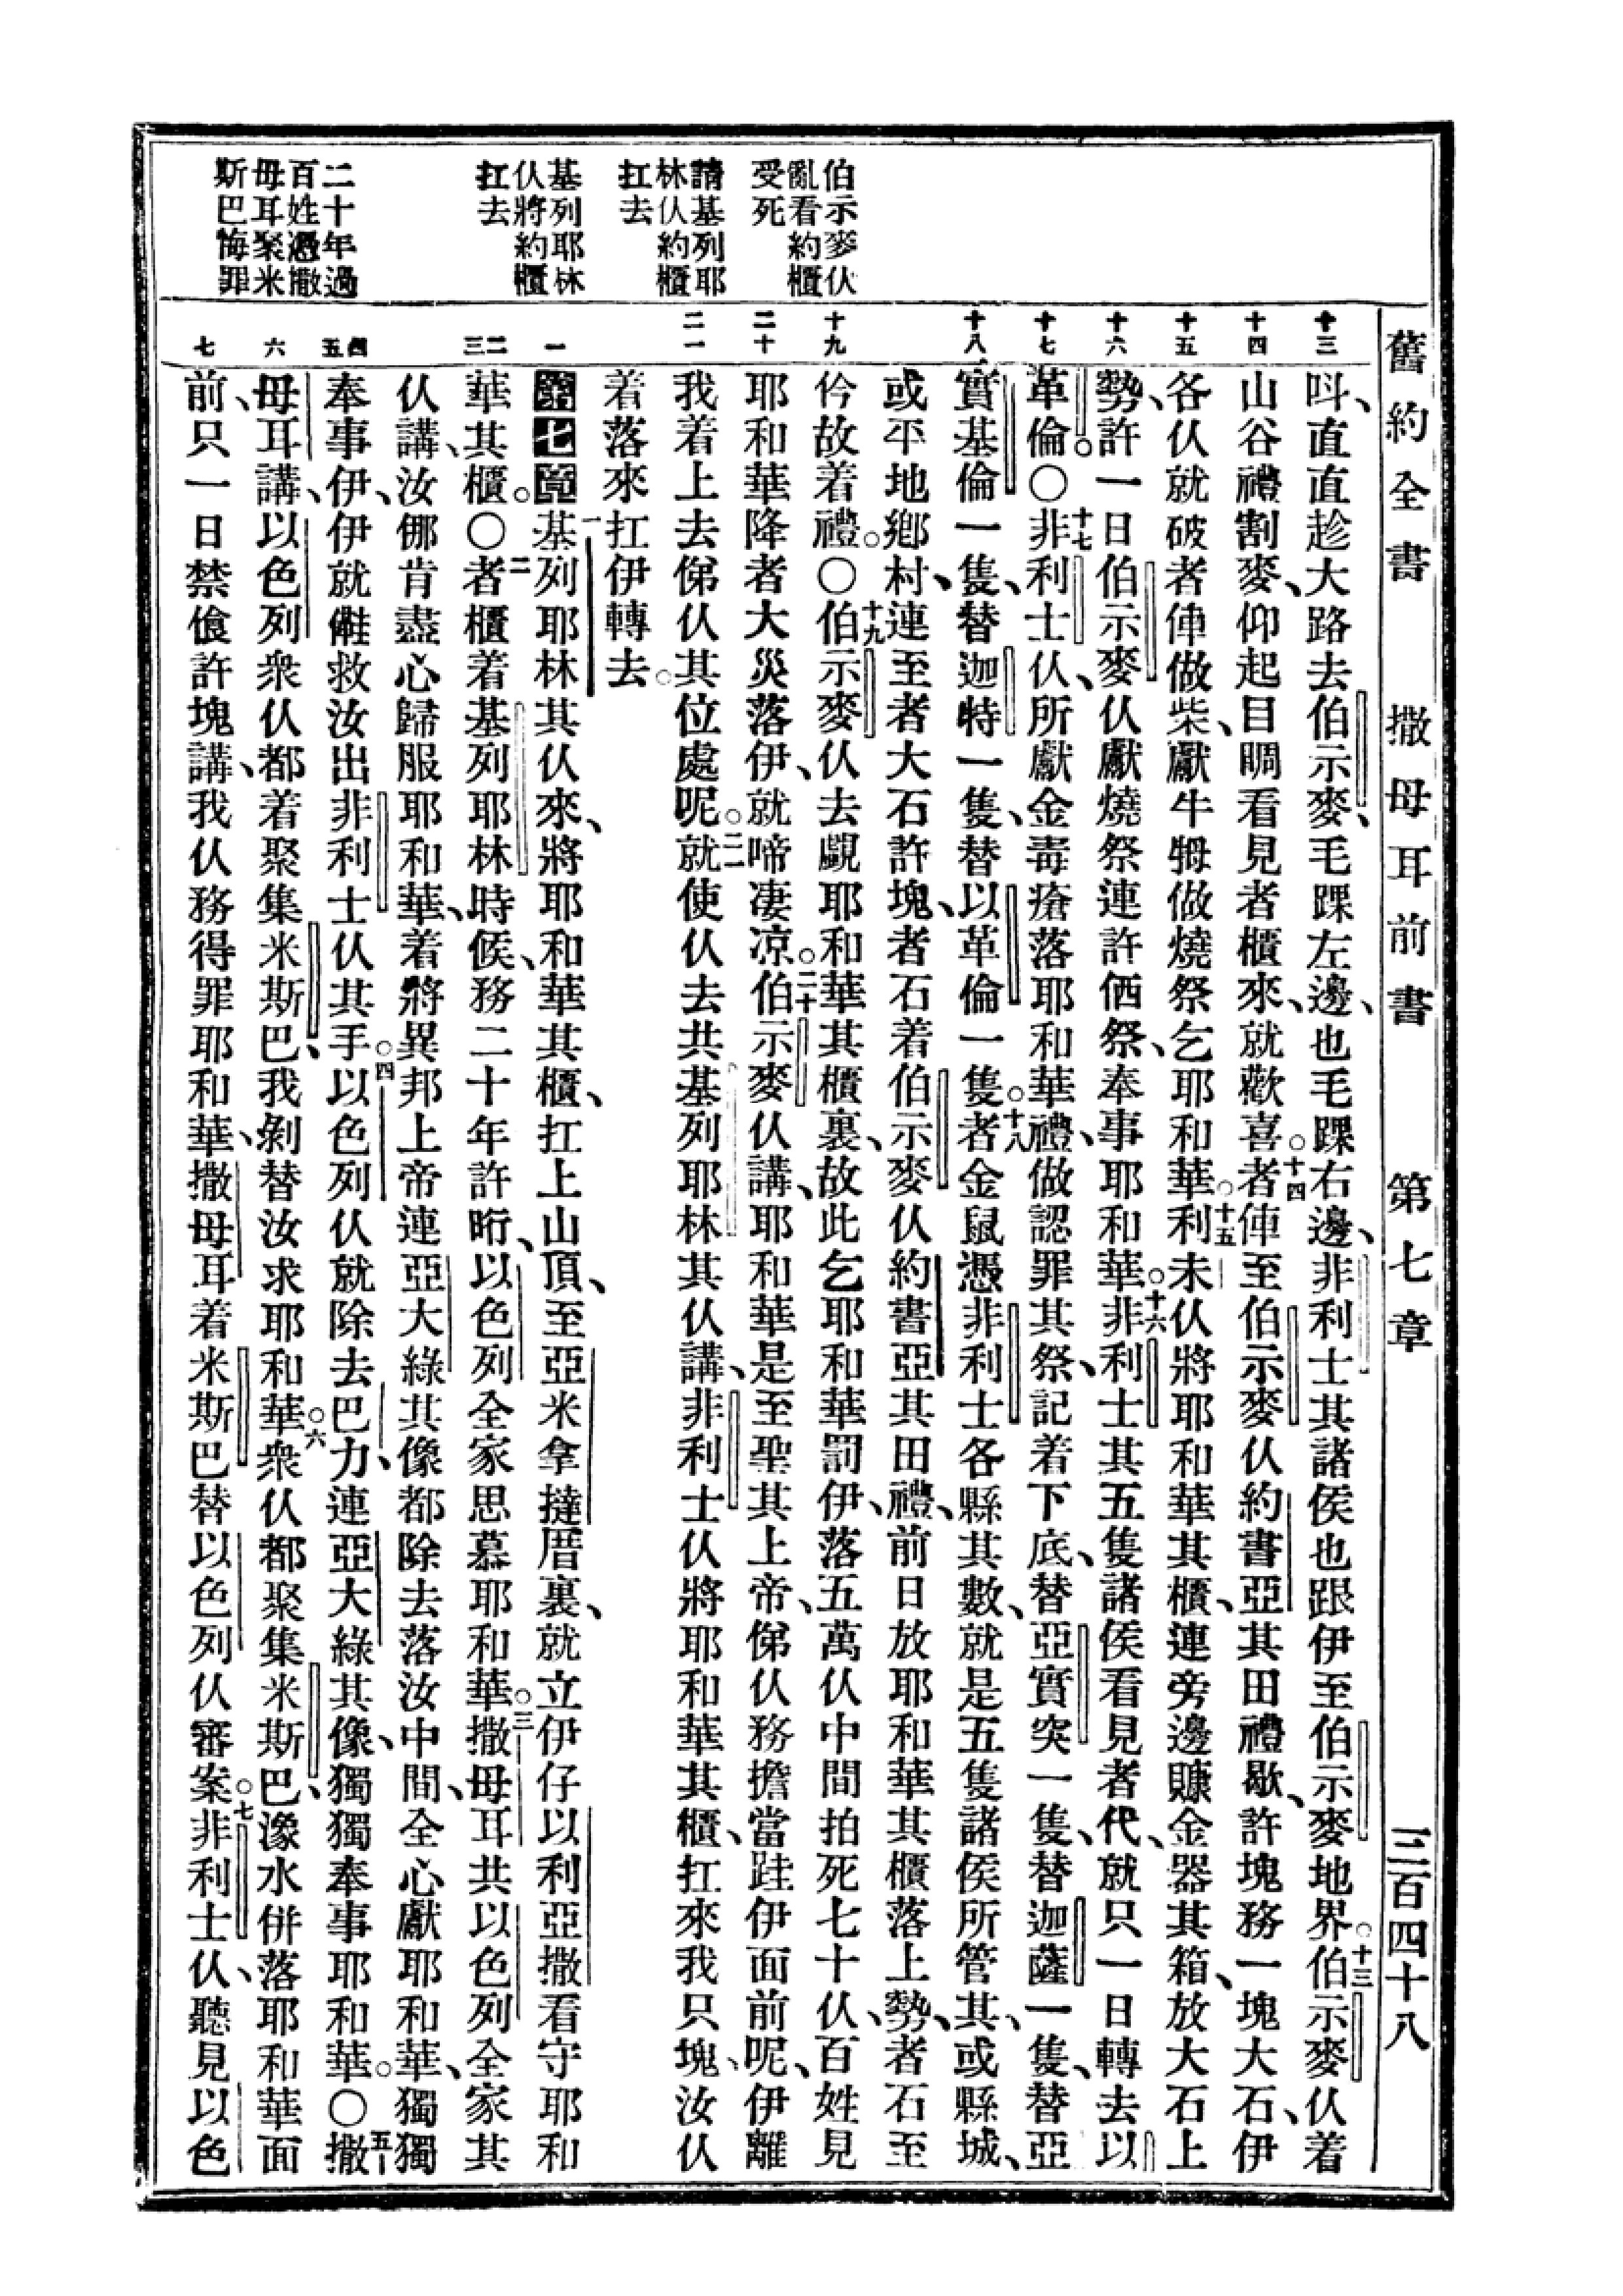 舊約全書 撒母耳前書 第七章 三百四十八
伯示麥伙
亂看約櫃
受死
請基列耶
林伙約櫃
扛去
基列耶林
伙將約櫃
扛去
二十年過
百姓憑撒
母耳聚米
斯巴悔罪
十三 十四 十五 十六 十七 十八 十九 二十 二一 一 二 三 四 五 六 七
呌、直直趁大路去伯示麥、毛踝左邊、也毛踝右邊、非利士其諸侯也跟伊至伯示麥地界。十三伯示麥伙着
山谷禮割麥、仰起目睭看見者櫃來、就歡喜。十四者俥至伯示麥伙約書亞其田禮歇、許塊務一塊大石、伊
各伙就破者俥做柴、獻牛牳做燒祭乞耶和華。十五利未伙將耶和華其櫃、連旁邊賺金器其箱、放大石上
勢、許一日伯示麥伙獻燒祭連許価祭、奉事耶和華。十六非利士其五隻諸侯看見者代、就只一日轉去以
革倫。〇十七非利士伙、所獻金毒瘡落耶和華禮、做認罪其祭、記着下底、替亞實突一隻、替迦薩一隻、替亞
實基倫一隻、替迦特一隻、替以革倫一隻。十八者金鼠憑非利士各縣其數、就是五隻諸侯所管其、或縣城、
或平地鄉村、連至者大石許塊、者石着伯示麥伙約書亞其田禮、前日放耶和華其櫃落上勢、者石至
仱故着禮。〇十九伯示麥伙去覷耶和華其櫃裏、故此乞耶和華罰伊、落五萬伙中間拍死七十伙、百姓見
耶和華降者大災落伊、就啼凄凉。二十伯示麥伙講、耶和華是至聖其上帝、俤伙務擔當跬伊面前呢、伊離
我着上去俤伙其位處呢。二一就使伙去共基列耶林其伙講、非利士伙將耶和華其櫃、扛來我只塊、汝伙
着落來扛伊轉去。
第七章一基列耶林其伙來、將耶和華其櫃、扛上山頂、至亞米拿撻厝裏、就立伊仔以利亞撒看守耶和
華其櫃。〇二者櫃着基列耶林時候、務二十年許𣍐、以色列全家思慕耶和華。三撒母耳共以色列全家其
伙講、汝倗肯盡心歸服耶和華、着將異邦上帝連亞大綠其像都除去落汝中間、全心獻耶和華、獨獨
奉事伊、伊就儺救汝出非利士伙其手。四以色列伙就除去巴力、連亞大綠其像、獨獨奉事耶和華。〇五撒
母耳講、以色列衆伙都着聚集米斯巴、我剝替汝求耶和華。六衆伙都聚集米斯巴、潒水併落耶和華面
前、只一日禁飡許塊講、我伙務得罪耶和華、撒母耳着米斯巴替以色列伙審案。七非利士伙、聽見以色